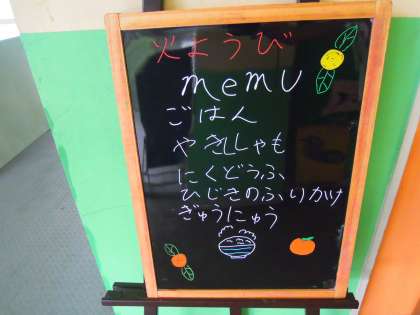 火ようび
memu
ごはん
やきししゃも
にくどうふ
ひじきのふりかけ
ぎゅうにゅう